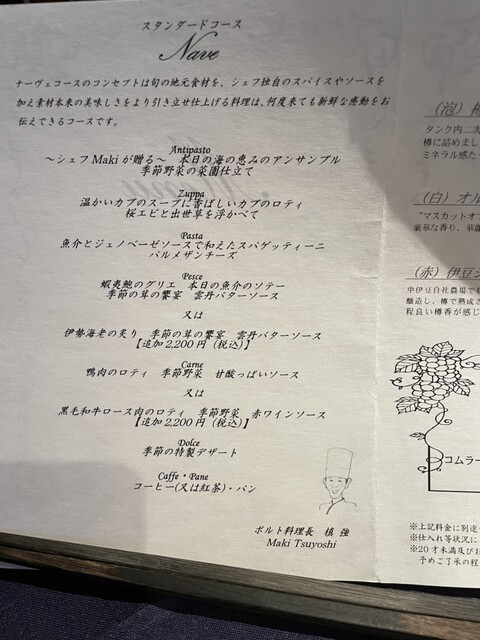 スタンダードコース
Nave
ナーヴェコースのコンセプトは旬の地元食材を、シェフ独自のスパイスやソースを
加え素材本来の美味しさをより引き立せ仕上げる料理は、何度来ても新鮮な感動をお
伝えできるコースです。
Antipasto
～シェフMakiが贈る～ 本日の海の恵みのアンサンブル
季節野菜の菜園仕立て
Zuppa
温かいカブのスープに香ばしいカブのロティ
桜エビと出世草を浮かべて
Pasta
魚介とジェノベーゼソースで和えたスパゲッティーニ
パルメザンチーズ
Pesce
蝦夷鮑のグリエ 本日の魚介のソテー
季節の茸の饗宴 雲丹バターソース
又は
伊勢海老の炙り 季節の茸の饗宴 雲丹バターソース
【追加2,200円（税込）】
Carne
鴨肉のロティ 季節野菜 甘酸っぱいソース
又は
黒毛和牛ロース肉のロティ 季節野菜 赤ワインソース
【追加2,200円（税込）】
Dolce
季節の特製デザート
Caffe・Pane
コーヒー(又は紅茶)・パン
ポルト料理長 槙 強
Maki Tsuyoshi
（泡）
タンク内二次
樽に詰めまし
ミネラル感た
（白）オル
"マスカットオブ
豪華な香り、華麗
（赤）伊豆シ
中伊豆自社農場で
醸造し、樽で熟成さ
程良い樽香が感じ
コムラー
※上記料金に別途
※仕入れ等状況に
※20才未満及びお
予めご了承の程